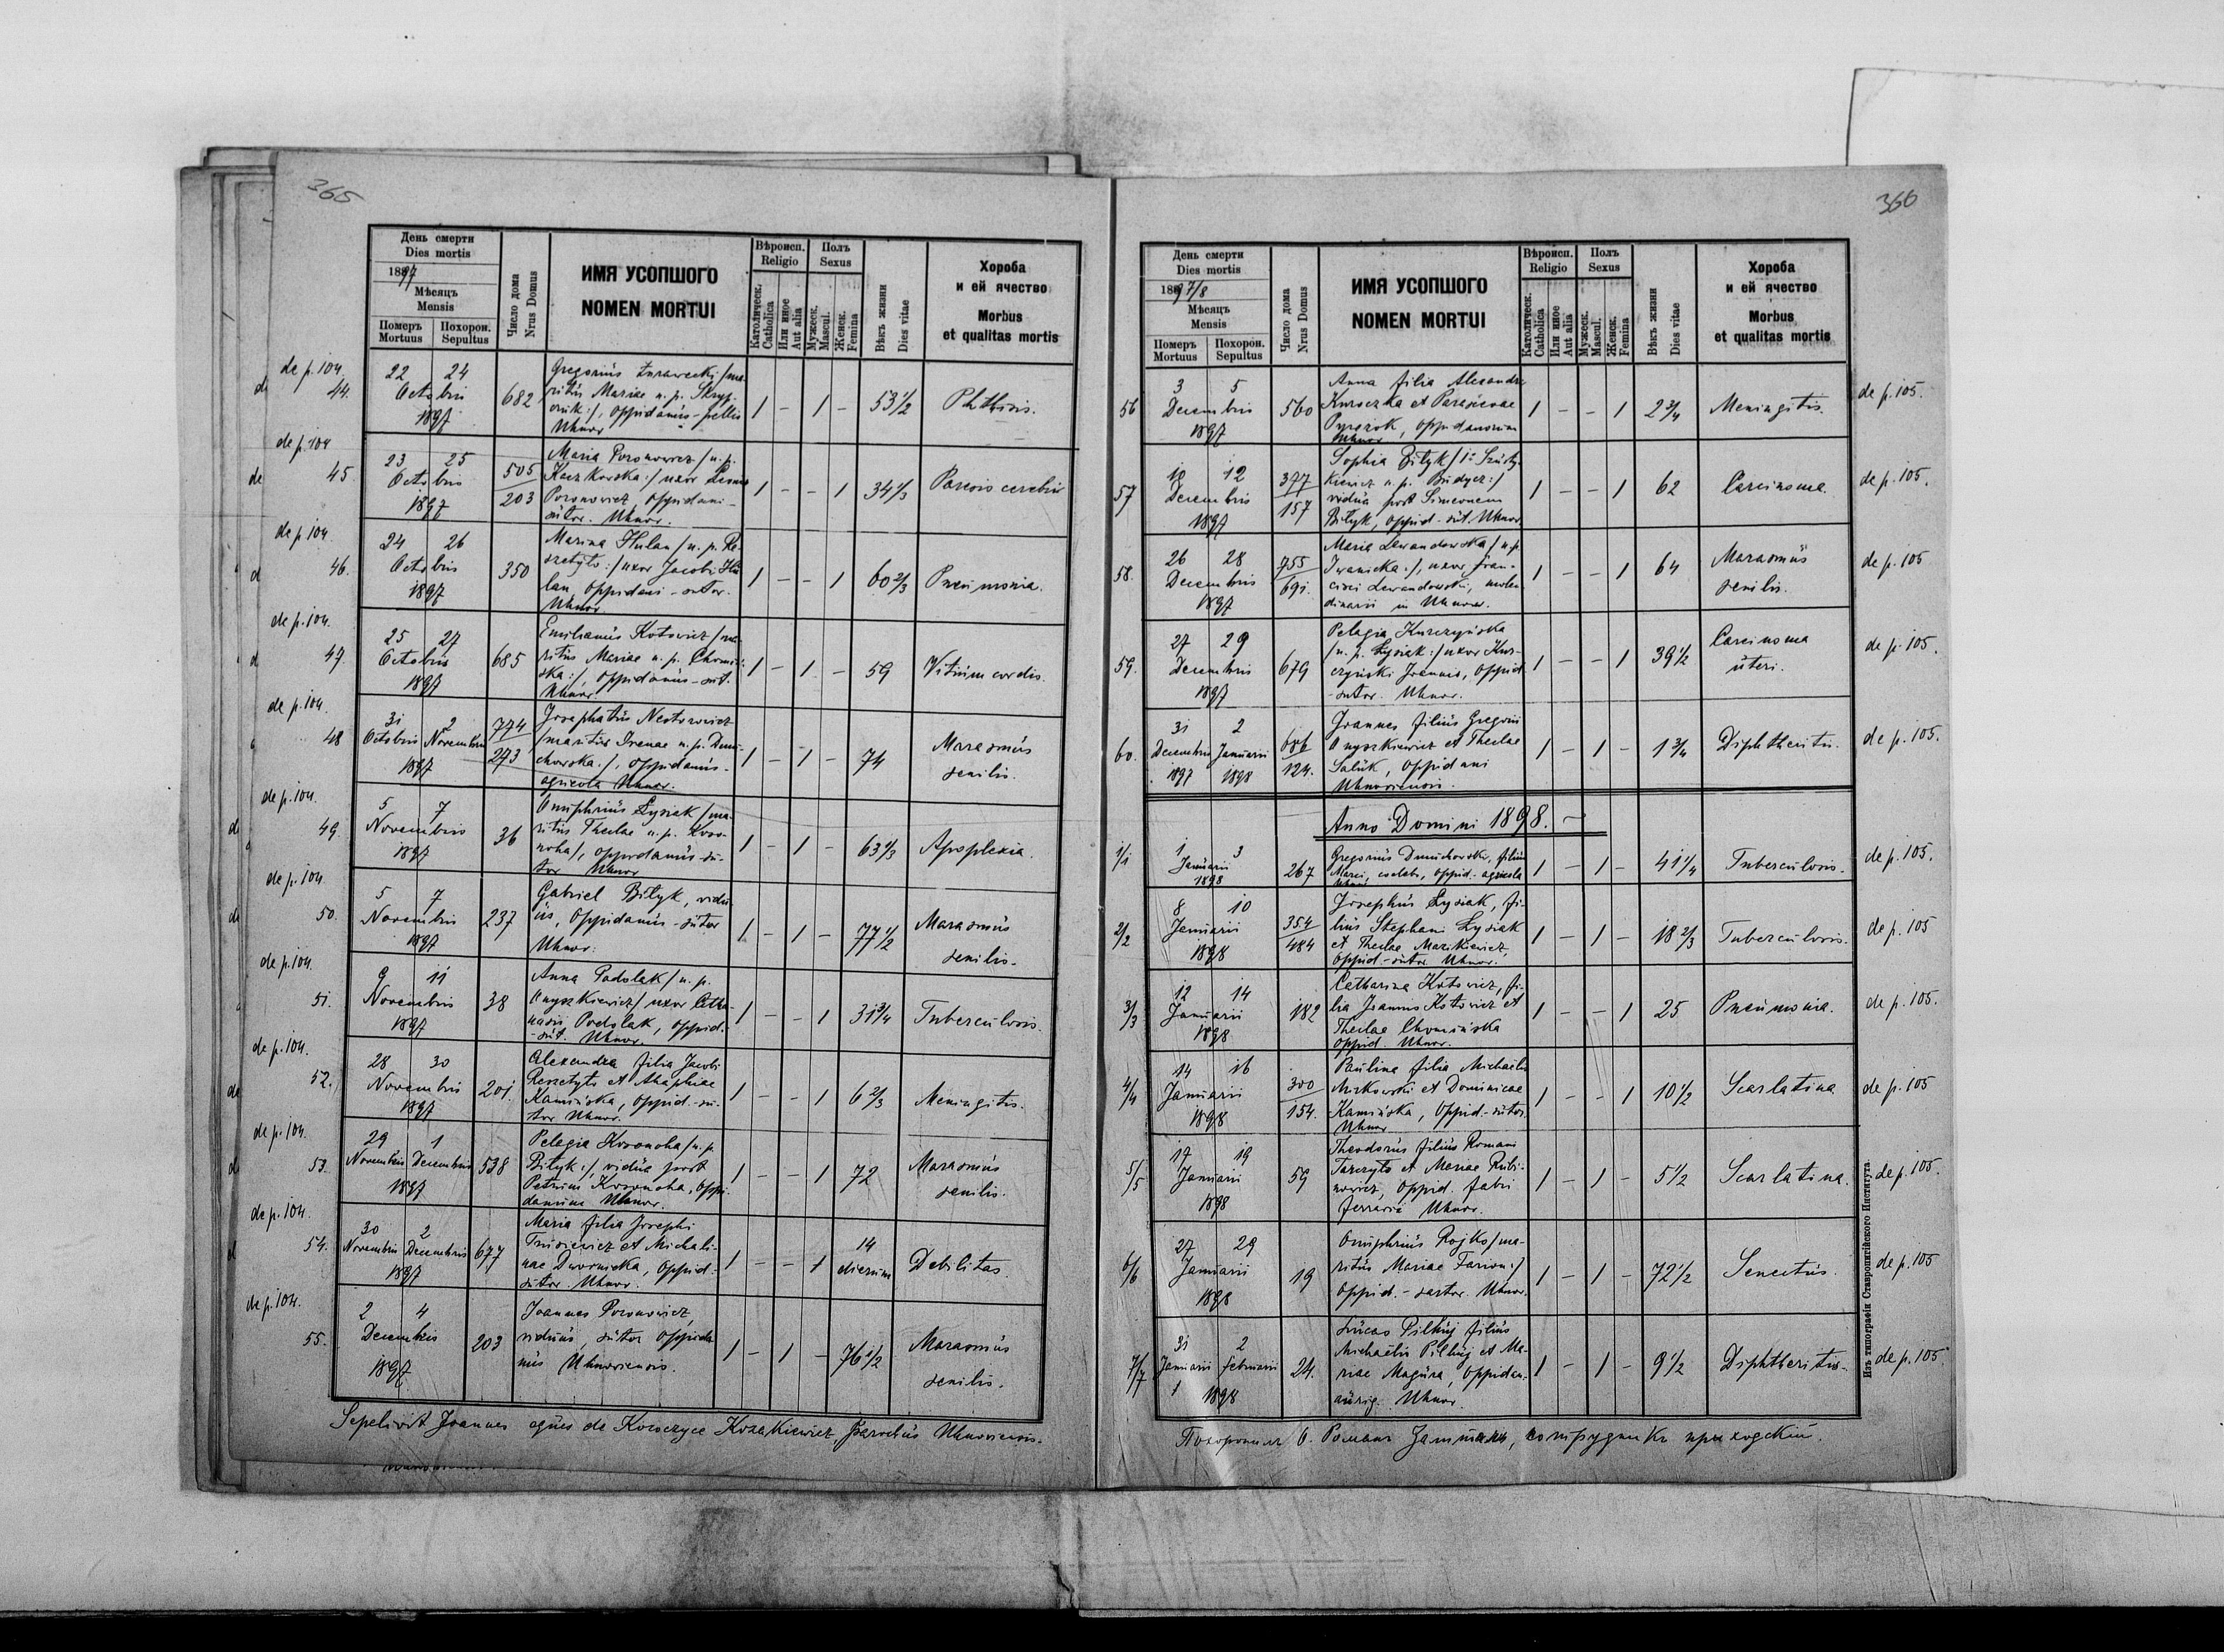 365
День смерти
Dies mortis
1897
Мѣсяцъ
Mensis
Померъ Похорон.
Mortuus Sepultus
Число дома
Nrus Domus
ИМЯ УСОПШОГО
NOMEN MORTUI
Вѣроисп.
Religio
Католическ.
Catholica
Или иное
Aut alia
Полъ
Sexus
Мужеск.
Mascul.
Женск.
Femina
Вѣкъ жизни
Dies vitae
Хороба
и ей ячество
Morbus
et qualitas mortis
de p. 104.
44. 22 24 Octobris 1897 682
Gregorius Żurawecki /ma-
ritus Mariae n. p. Skryp-
:/, oppidanus - pellio
Uhnov
1 - 1 - 53 1/2 Phthisis.
de p. 104
45. 23 25 Octobris 1897 505/203
Maria Poronowicz /n. p.
Kaczkowska :/ uxor
Poronowicz, oppidani -
sutor. Uhnov.
1 - - 1 34 1/3 Paresis cerebri
de p. 104
46. 24 26 Octobris 1897 350
Marina Hulan /n. p. Re-
szetyło :/ uxor Jacobi Hu-
lan, oppidani - sutor.
Uhnov.
1 - - 1 60 2/3 Pneumonia.
de p. 104.
47. 25 27 Octobris 1897 685
Emilianus Kotowicz /ma-
ritus Mariae n. p. Chomiń-
ska :/, oppidanus - sut.
Uhnov.
1 - 1 - 59 Vitium cordis.
de p. 104.
48 31 Octobris 2 Novembris 1897 774/273
Josephatus Nestorowicz
/maritus Irenae n. p. Dmu-
chowska :/, oppidanus -
agricola Uhnov.
1 - 1 - 74 Marasmus
senilis.
de p. 104.
49. 5 7 Novembris 1897 36
Onuphrius Łysiak /ma-
ritus Theclae n. p. Kroo-
noha/, oppidanus - su-
tor Uhnov
1 - 1 - 63 1/3 Apoplexia.
de p. 104
50. 5 7 Novembris 1897 237
Gabriel Bityk, vidu-
us, oppidanus - sutor
Uhnov.
1 - 1 - 77 1/2 Marasmus
senilis.
de p. 104.
51. 9 11 Novembris 1897 38
Anna Podolak /n. p.
Onyszkiewicz/ uxor Atha-
nasii Podolak, oppid.
- sut. Uhnov.
1 - - 1 31 3/4 Tuberculosis.
de p. 104.
52. 28 30 Novembris 1897 201.
Alexandra filia Jacobi
Reszetyło et Ahaphiae
Kamińska, oppid. - su-
tor Uhnov.
1 - - 1 6 2/3 Meningitis.
de p. 104.
53. 29 Novembris 1 Decembris 1897 538
Pelagia Kroonoha /n. p.
Bityk :/, vidua post
Petrum Kroonoha, oppi-
danum Uhnov.
1 - - 1 72 Marasmus
senilis.
de p. 104.
54. 30 Novembris 2 Decembris 1897 677
Maria filia Josephi
Trusiewicz et Michali-
nae Dwornicka, oppid. -
sutor. Uhnov.
1 - - 1 14 dierum Debilitas.
de p. 104.
55. 2 4 Decembris 1897 203
Joannes Poronowicz,
viduus, sutor oppida-
nus Uhnoviensis.
1 - 1 - 76 1/2 Marasmus
senilis.
Sepelivit Joannes eques de Korczyce Kozakiewicz, parochus Uhnoviensis.
366
День смерти
Dies mortis
1897/8
Мѣсяцъ
Mensis
Померъ Похорон.
Mortuus Sepultus
Число дома
Nrus Domus
ИМЯ УСОПШОГО
NOMEN MORTUI
Вѣроисп.
Religio
Католическ.
Catholica
Или иное
Aut alia
Полъ
Sexus
Мужеск.
Mascul.
Женск.
Femina
Вѣкъ жизни
Dies vitae
Хороба
и ей ячество
Morbus
et qualitas mortis
56 3 5 Decembris 1897 560
Anna filia Alexandri
Kuroczka et Parascevae
oppidanorum
Uhnov
1 - - 1 2 3/4 Meningitis. de p. 105.
57 10 12 Decembris 1897 377/157
Sophia Bityk /1°
n. p. Budycz :/
vidua post Simeonem
Bityk, oppid - sut. Uhnov
1 - - 1 62 Carcinoma. de p. 105.
58. 26 28 Decembris 1897 755/691.
Maria Lewandowska /n. p.
Iwanicka :/, uxor Fran-
cisci Lewandowski, molen-
dinarii in Uhnov.
1 - - 1 64 Marasmus
senilis. de p. 105
59. 27 29 Decembris 1897 679
Pelagia Kurczyńska
/n. p. Łysiak :/ uxor Kur-
czyński Joannis, oppid
- sutor. Uhnov.
1 - - 1 39 1/2 Carcinoma
uteri. de p. 105.
60. 31 Decembris 1897 2 Januarii 1898 686/124.
Joannes filius Gregorii
Onyszkiewicz et Theclae
Saluk, oppidani
Uhnoviensis.
1 - 1 - 1 3/4 Diphtheritis. de p. 105.
Anno Domini 1898.
1/1 1 3 Januarii 1898 267
Gregorius Dmuchowski, filius
Marci, coelebs, oppid. - agricola
Uhnov.
1 - 1 - 41 1/4 Tuberculosis. de p. 105.
2/2 8 10 Januarii 1898 354/484
Josephus Łysiak, fi-
lius Stephani Łysiak
et Theclae Markiewicz,
oppid - sutor Uhnov.
1 - 1 - 18 2/3 Tuberculosis. de p. 105
3/3 12 14 Januarii 1898 182
Catharina Kotowicz, fi-
lia Joannis Kotowicz et
Theclae Chomińska
oppid. Uhnov.
1 - - 1 25 Pneumonia. de p. 105.
4/4 14 16 Januarii 1898 300/154.
Paulina filia Michaelis
Mirkowski et Dominicae
Kamińska, oppid. - sutor.
Uhnov
1 - - 1 10 1/2 Scarlatina de p. 105
5/5 17 19 Januarii 1898 59
Theodorus filius Romani
Tarczyło et Mariae Rubi-
nowicz, oppid. fabri
ferrarii Uhnov.
1 - 1 - 5 1/2 Scarlatina. de p. 105.
6/6 27 29 Januarii 1898 19
Onuphrius Rojko /ma-
ritus Mariae Farion :/
oppid. - sartor. Uhnov.
1 - 1 - 72 1/2 Senectus. de p. 105
7/7 31 Januarii 2 Februarii 1898 24.
Lucas Pilhuj filius
Michaelis Pilhuj et Ma-
riae Magura, oppidan.
aurig. Uhnov.
1 - 1 - 9 1/2 Diphtheritis. de p. 105
Похоронилъ О. Романъ сотрудникъ приходскій.
Изъ типографіи Ставропигійского Института.